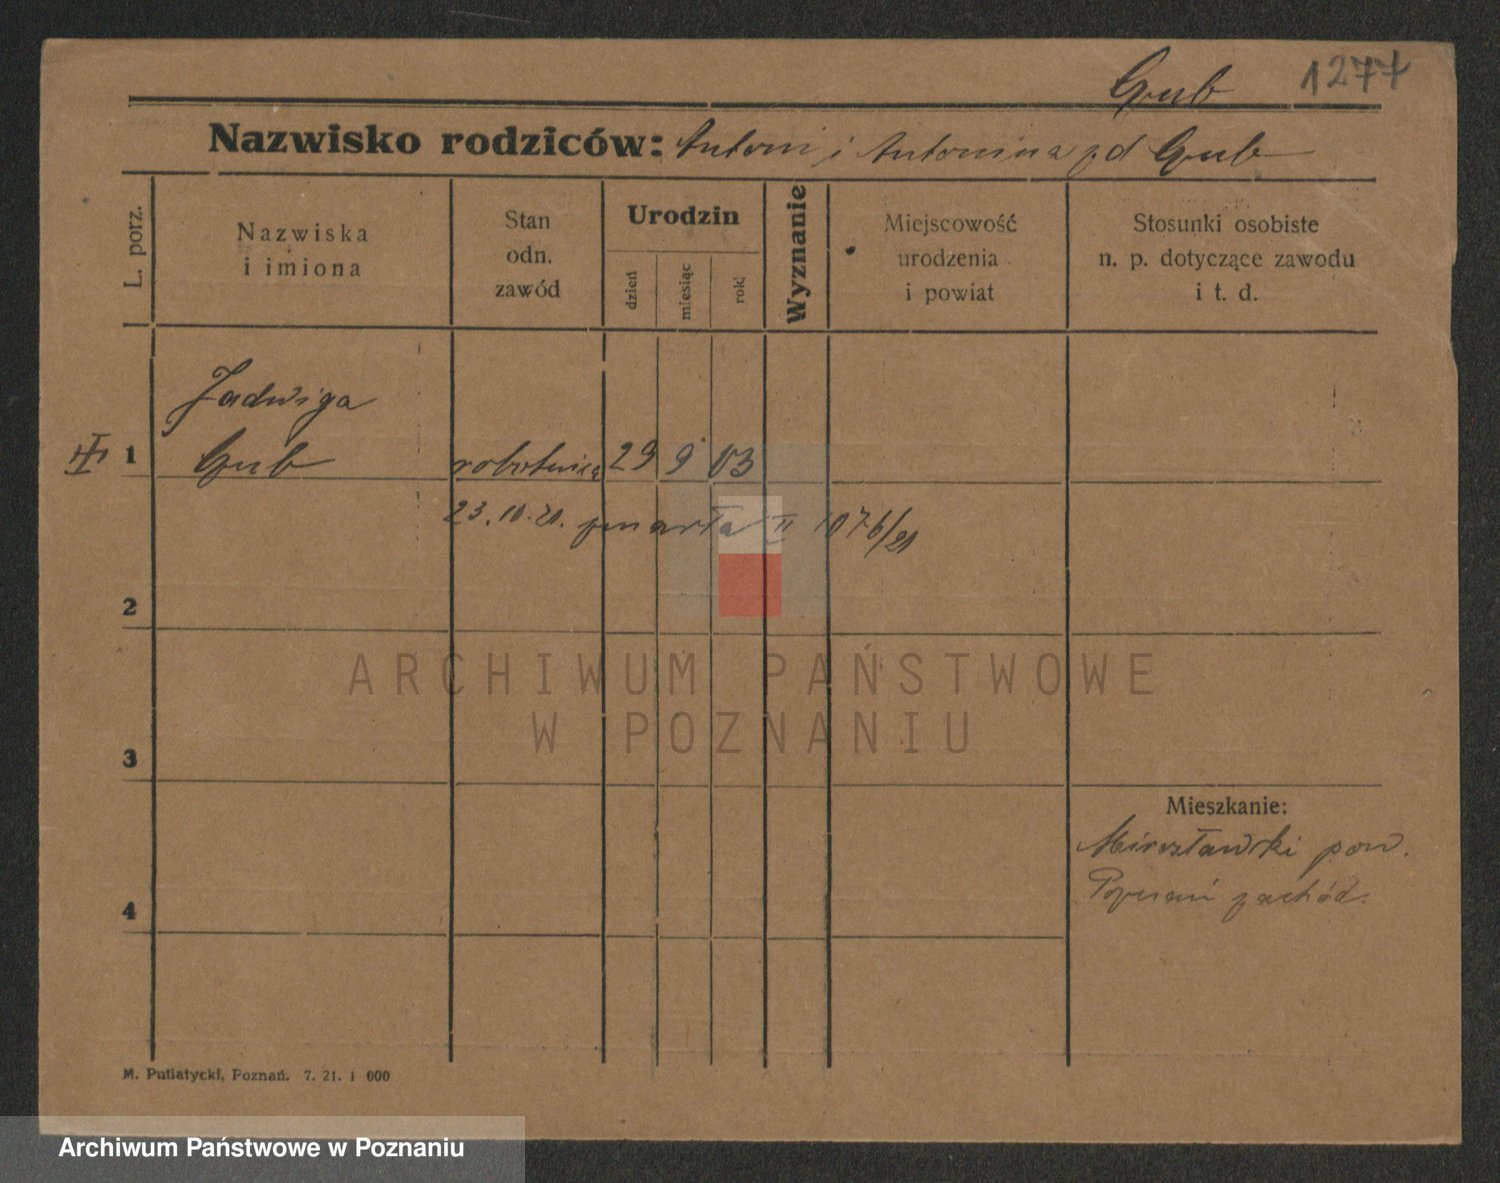 Grub 1277
Nazwisko rodziców: Antoni i Antonina zd Grub
L. porz.
Nazwiska
i imiona
Stan
odn.
zawód
Urodzin
dzień
miesiąc
rok
Wyznanie
Miejscowość
urodzenia
i powiat
Stosunki osobiste
n. p. dotyczące zawodu
i t. d.
Jadwiga
1 Grub robotnica 29 9 03
23.10.21. zmarła II 1076/21
2
3
4
Mieszkanie:
Mirosławki pow.
Poznań zachód.
M. Putiatycki, Poznań. 7. 21. 1 000
ARCHIWUM PAŃSTWOWE
W POZNANIU
Archiwum Państwowe w Poznaniu